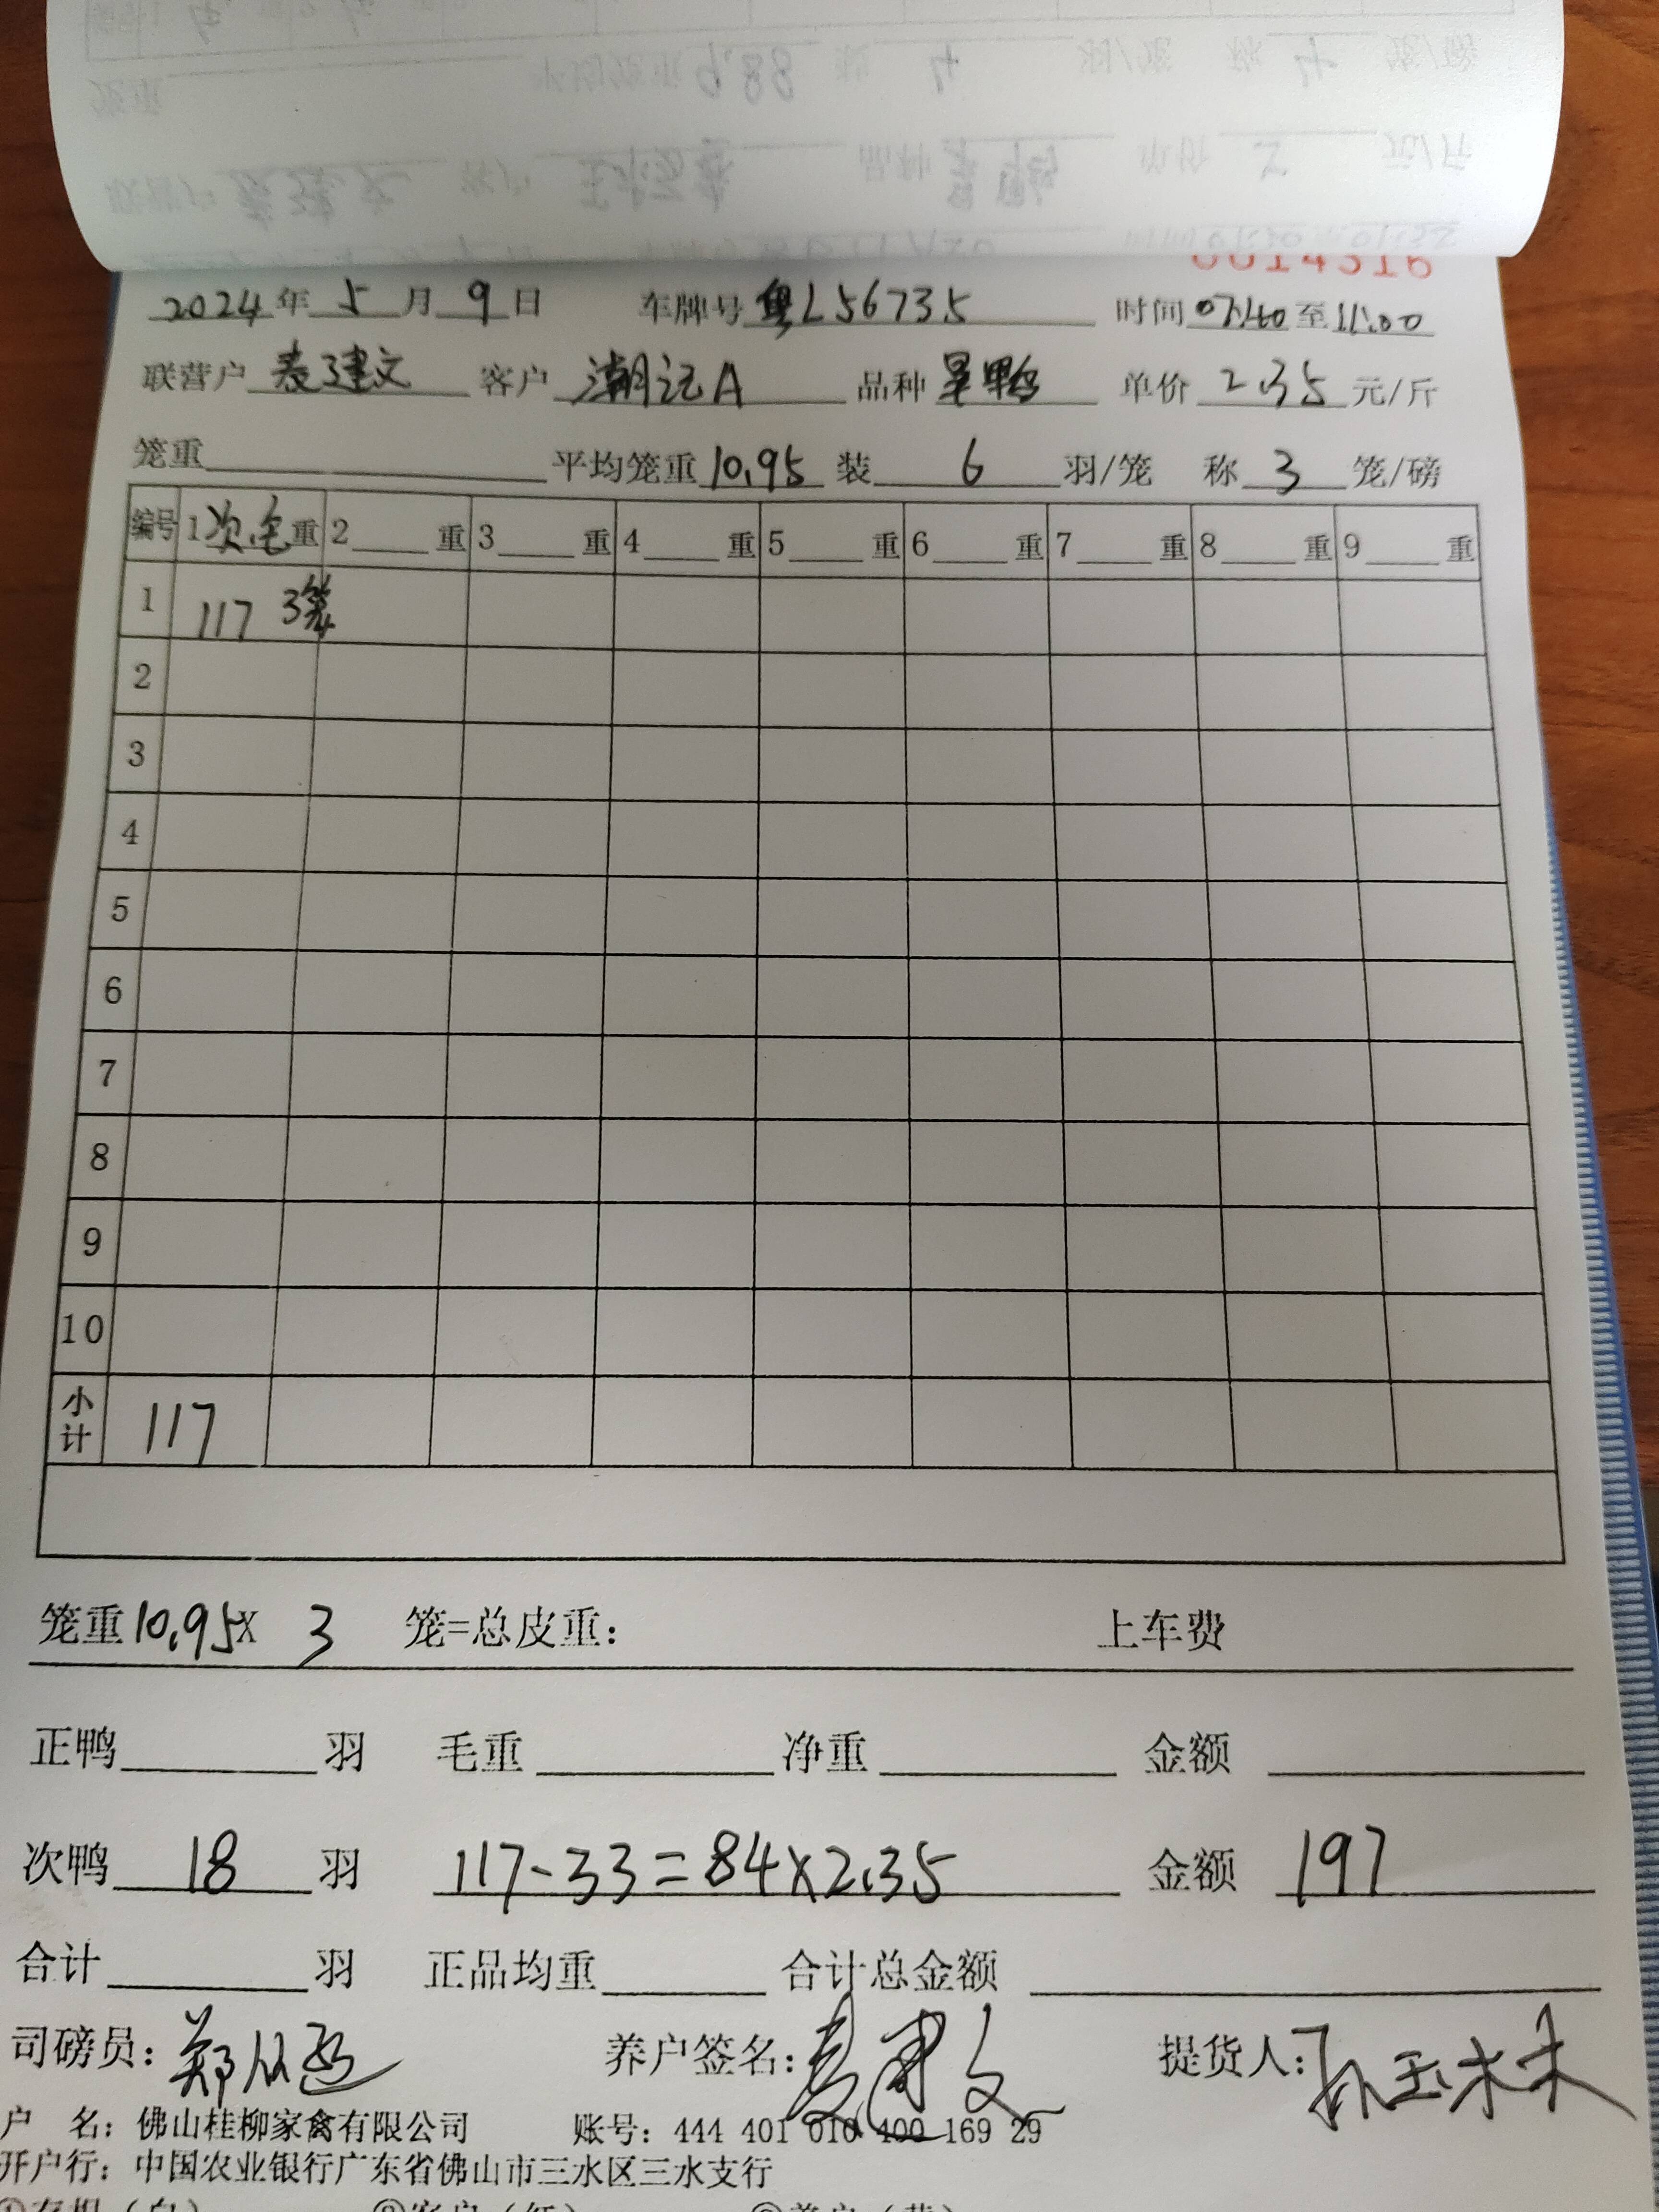 0014316
2024年5月9日 车牌号 粤L56735 时间 07:40 至 11:00
联营户 麦建文 客户 潮记A 品种 单价 2.35 元/斤
笼重 平均笼重 10.95 装 6 羽/笼 称 3 笼/磅
编号 1 次 重 2 重 3 重 4 重 5 重 6 重 7 重 8 重 9 重
1 117 3笼
2
3
4
5
6
7
8
9
10
小计 117
笼重 10.95 X 3 笼=总皮重: 上车费
正鸭 羽 毛重 净重 金额
次鸭 18 羽 117-33=84×2.35 金额 197
合计 羽 正品均重 合计总金额
司磅员: 郑 养户签名: 麦建文 提货人:
户 名: 佛山桂柳家禽有限公司 账号: 444 401 010 400 169 29
开户行: 中国农业银行广东省佛山市三水区三水支行